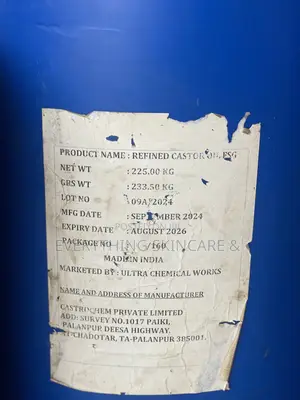 PRODUCT NAME : REFINED CASTOR OIL FSG
NET WT : 225.00 KG
GRS WT : 233.50 KG
LOT NO : 09A/2024
MFG DATE : SEPTEMBER 2024
EXPIRY DATE : AUGUST 2026
PACKAGE NO : 160
EVERYTHING SKINCARE &
MADE IN INDIA
MARKETED BY : ULTRA CHEMICAL WORKS
NAME AND ADDRESS OF MANUFACTURER
GASTROCHEM PRIVATE LIMITED
ADD: SURVEY NO.1017 PAIKI,
PALANPUR DEESA HIGHWAY,
AT-CHADOTAR, TA-PALANPUR 385001.